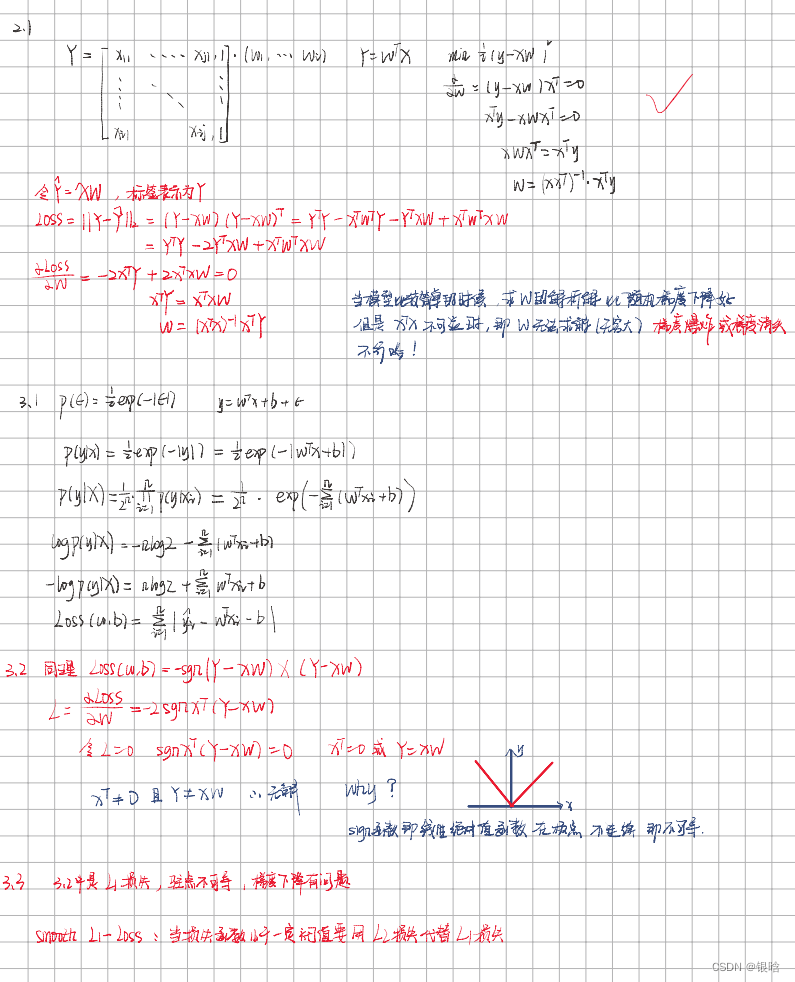 2.1
Y = [x₁₁ ⋯ x₁ⱼ, 1 ⋮ ⋱ ⋮ xᵢ₁ xᵢⱼ, 1] · (w₁, ⋯ w₂) Y = wᵀX min ½(y-xw)²
∂/∂w = (y-xw)xᵀ=0
xᵀy-xwxᵀ=0
xwxᵀ=xᵀy
w=(xxᵀ)⁻¹·xᵀy
令Ŷ=XW,标签表示为Y
Loss = ||Y-Ŷ||₂ = (Y-XW)(Y-XW)ᵀ = YᵀY - XᵀWᵀY - YᵀXW + XᵀWᵀXW
= YᵀY - 2YᵀXW + XᵀWᵀXW
∂Loss/∂W = -2XᵀY + 2XᵀXW = 0
XᵀY = XᵀXW
W = (XᵀX)⁻¹XᵀY
当模型比较简单的时候,求W的解析解比随机梯度下降好
但是XᵀX不可逆时,即W无法求解(无穷大)梯度爆炸或梯度消失
不行哈!
3.1 p(ϵ)=½exp(-|ϵ|) y=wᵀx+b+ϵ
p(y|x) = ½exp(-|y|) = ½exp(-|wᵀx+b|)
p(y|X)=1/2ⁿ·∏ⁿᵢ₌₁p(y|xᵢ) = 1/2ⁿ · exp(-∑ⁿᵢ₌₁(wᵀxᵢ+b))
logp(y|X)=-nlog2 - ∑ⁿᵢ₌₁|wᵀxᵢ+b|
-logp(y|X)= nlog2 + ∑ⁿᵢ₌₁wᵀxᵢ+b
Loss(w,b)= ∑ⁿᵢ₌₁|ŷᵢ - wᵀxᵢ - b|
3.2 同理 Loss(w,b)=-sgn(Y-XW)X(Y-XW)
L = ∂Loss/∂W = -2sgnXᵀ(Y-XW)
令L=0 sgnXᵀ(Y-XW)=0 Xᵀ=0 或 Y=XW
Xᵀ≠0 且 Y≠XW ∴无解 Why?
y
x
sign函数即线性绝对值函数在极点不连续即不可导.
3.3 3.2中是L1损失,驻点不可导,梯度下降有问题
smooth L1-Loss:当损失函数小于一定阈值要用L2损失代替L1损失
CSDN @银晗